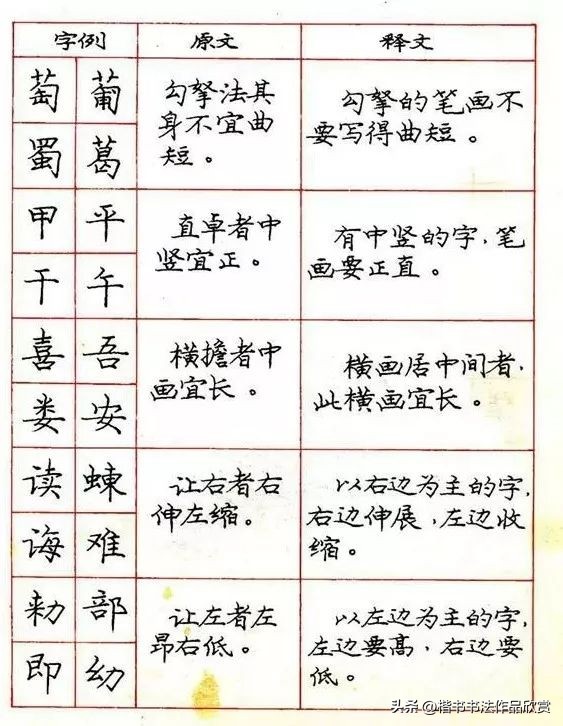 字例 原文 释文
萄 葡
蜀 葛
勾拏法其
身不宜曲
短。
勾拏的笔画不
要写得曲短。
甲 平
干 午
直卓者中
竖宜正。
有中竖的字，笔
画要正直。
喜 吾
娄 安
横担者中
画宜长。
横画居中间者，
此横画宜长。
读 蝀
诲 难
让右者右
伸左缩。
以右边为主的字，
右边伸展，左边收
缩。
勑 部
即 幼
让左者左
昂右低。
以左边为主的字，
左边要高，右边要
低。
头条 @楷书书法作品欣赏